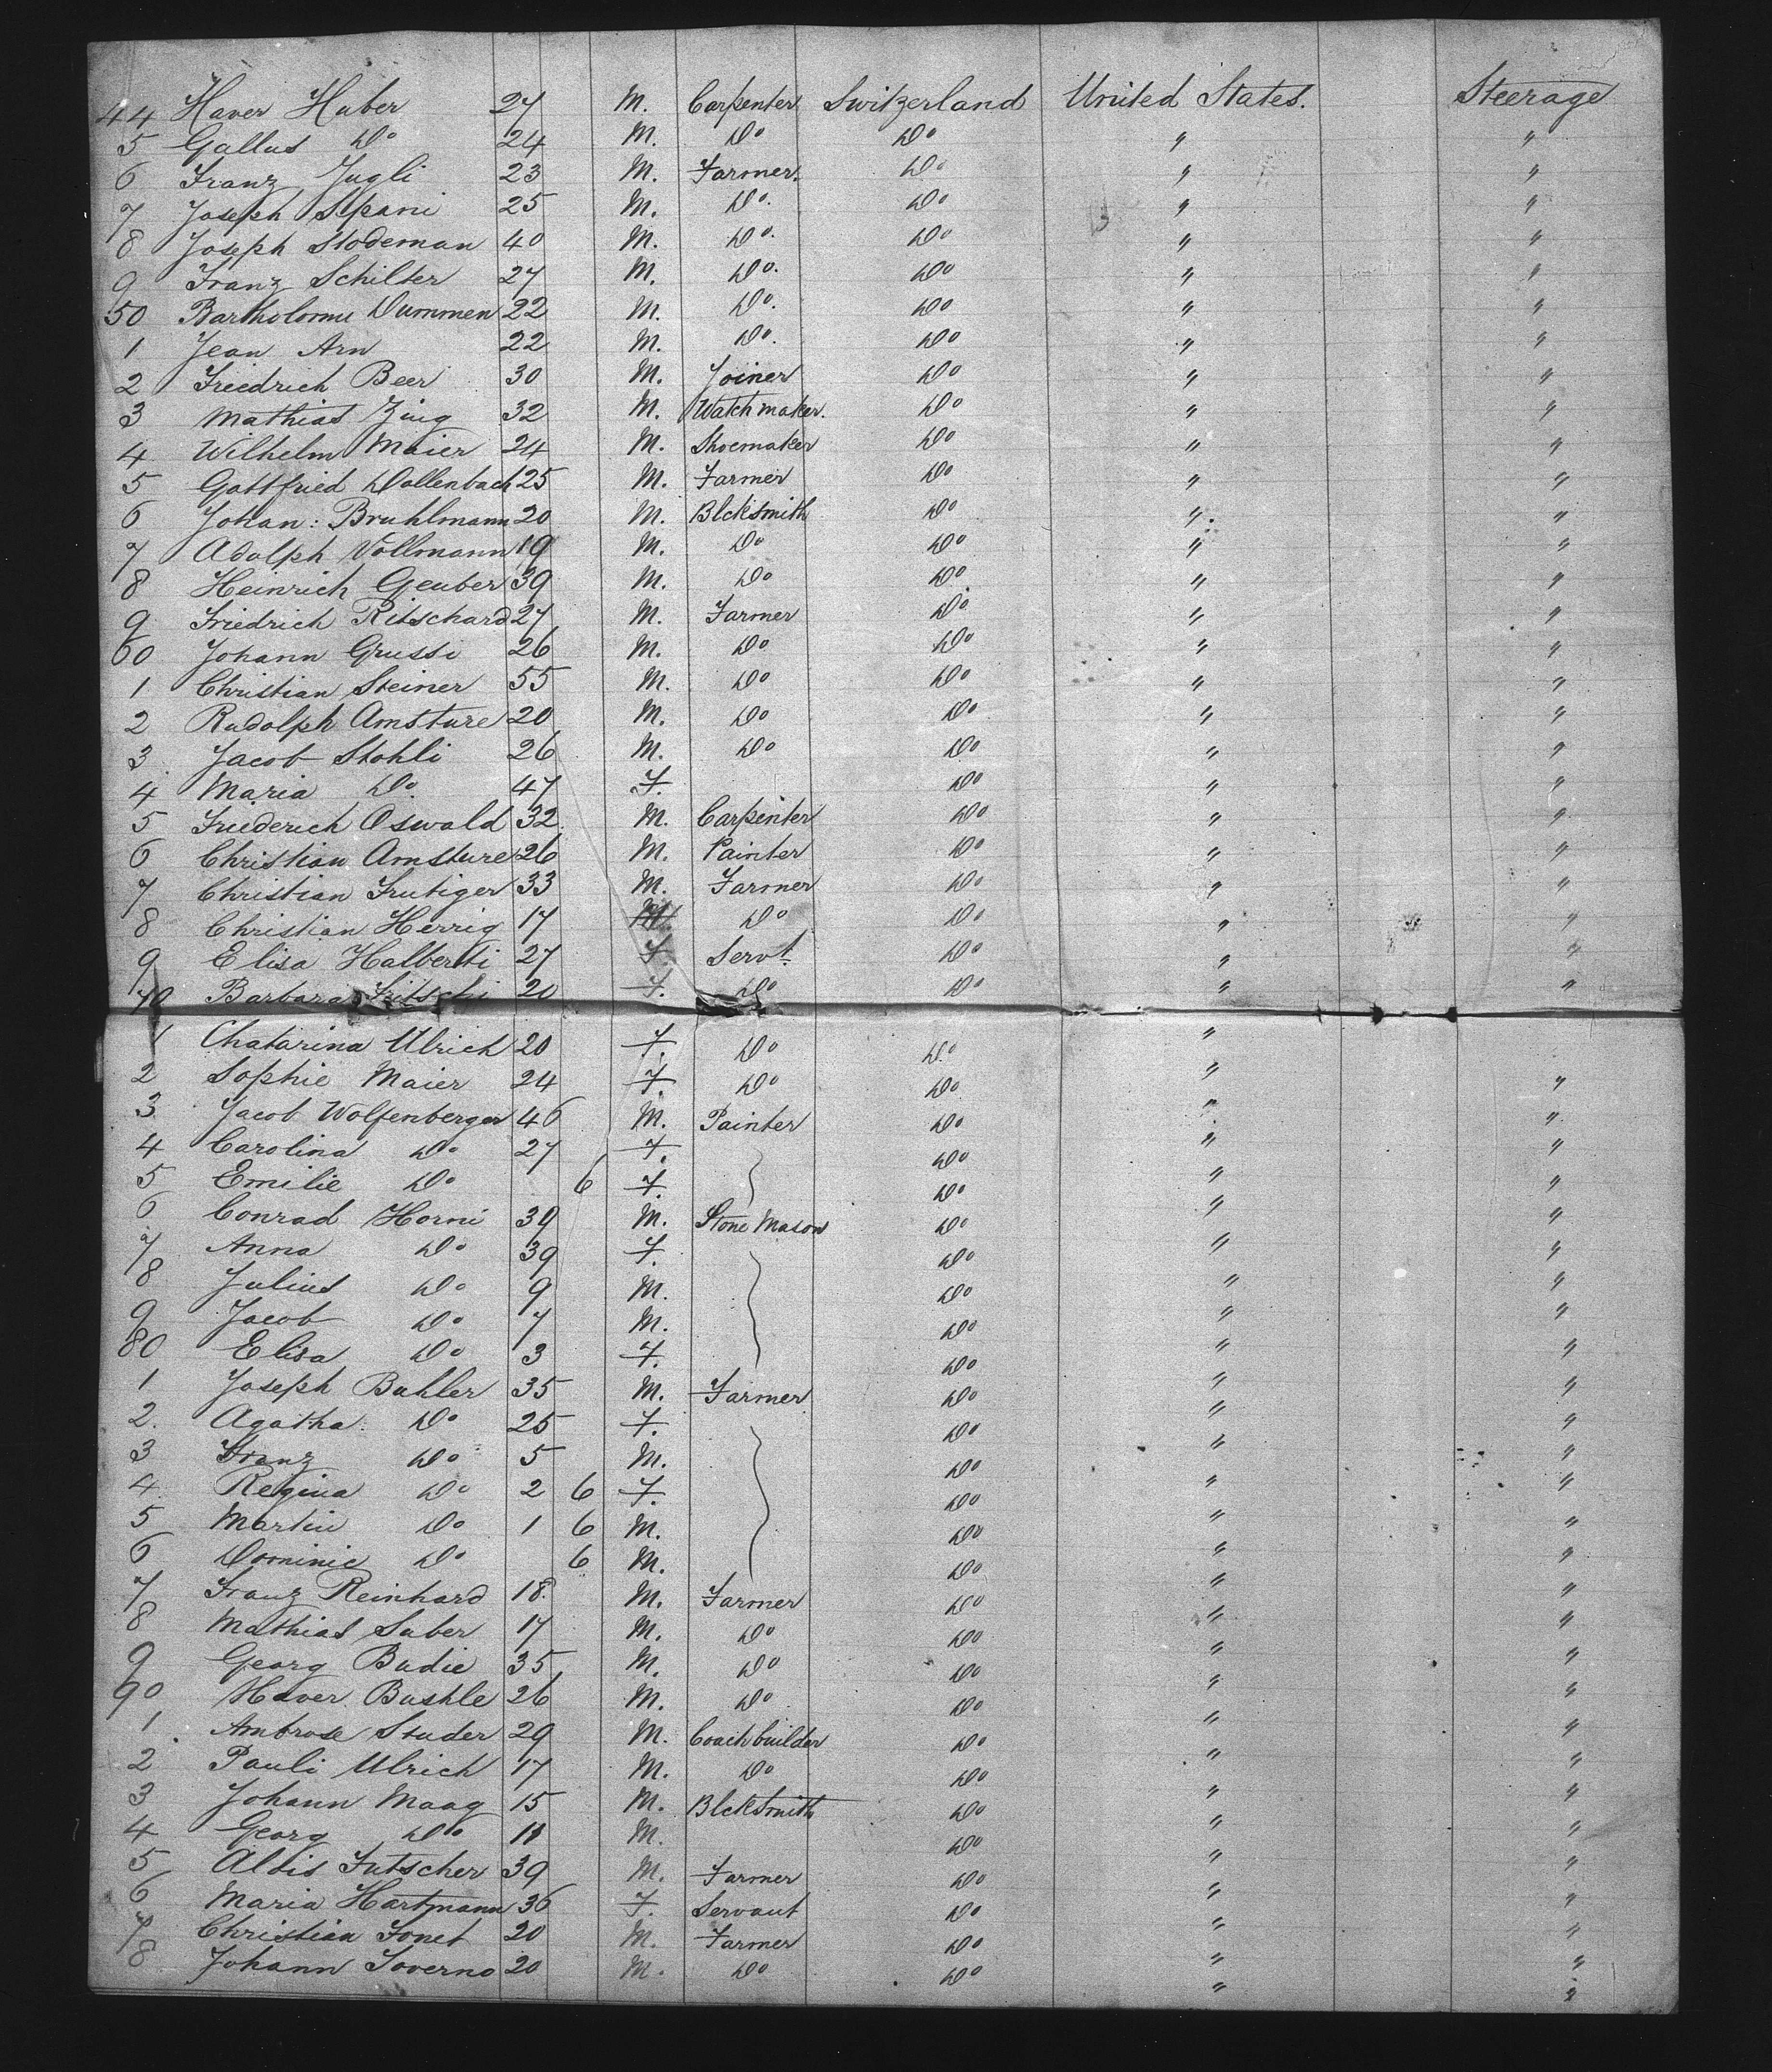 44 Haver Huber 27 M. Carpenter Switzerland United States. Steerage
5 Gallus Do 24 M. Do Do " "
6 Franz Jugli 23 M. Farmer. Do " "
7 Joseph Spani 25 M. Do. Do " "
8 Joseph Stodeman 40 M. Do. Do " "
9 Franz Schilter 27 M. Do. Do " "
50 Bartholomu Dummen 22 M. Do. Do " "
1 Jean Arn 22 M. Do. Do " "
2 Friedrich Beer 30 M. Joiner Do " "
3 Mathias Zing 32 M. Watchmaker. Do " "
4 Wilhelm Maier 24 M. Shoemaker Do " "
5 Gottfried Dollenbach 25 M. Farmer Do " "
6 Johan: Bruhlmann 20 M. Blcksmith Do " "
7 Adolph Vollmann 19 M. Do Do " "
8 Heinrich Geuber 39 M. Do Do " "
9 Friedrich Ritschard 27 M. Farmer Do " "
60 Johann Grussi 26 M. Do Do " "
1 Christian Steiner 55 M. Do Do " "
2 Rudolph Amsture 20 M. Do Do " "
3 Jacob Stohli 26 M. Do Do " "
4 Maria Do. 47 F. Do " "
5 Friederich Oswald 32 M. Carpenter Do " "
6 Christian Amsture 26 M. Painter Do " "
7 Christian Frutiger 33 M. Farmer Do " "
8 Christian Herrig 17 M. Do Do " "
9 Elisa Halberti 27 F. Servt. Do " "
70 Barbara Fritschi 20 F. Do Do " "
1 Chatarina Ulrich 20 F. Do Do "
2 Sophie Maier 24 F. Do Do " "
3 Jacob Wolfenberger 46 M. Painter Do " "
4 Carolina Do 27 F. Do " "
5 Emilie Do 6 F. Do " "
6 Conrad Horni 39 M. Stone Mason Do " "
7 Anna Do 39 F. Do " "
8 Julius Do 9 M. Do " "
9 Jacob Do 7 M. Do " "
80 Elisa Do 3 F. Do " "
1 Joseph Buhler 35 M. Farmer Do " "
2. Agatha Do 25 F. Do " "
3 Franz Do 5 M. Do " "
4 Regina Do 2 6 F. Do " "
5 Martin Do 1 6 M. Do " "
6 Dominic Do 6 M. Do " "
7 Franz Reinhard 18. M. Farmer Do " "
8 Mathias Suber 17 M. Do Do " "
9 Georg Budie 35 M. Do Do " "
90 Haver Bushle 26 M. Do Do " "
1 Ambrose Studer 29 M. Coachbuilder Do " "
2 Pauli Ulrich 17 M. Do Do " "
3 Johann Maag 15 M. Blcksmith Do " "
4 Georg Do 11 M. Do " "
5 Aldis Futscher 39 M. Farmer Do " "
6 Maria Hartmann 36 F. Servant Do " "
7 Christian Fonet 20 M. Farmer Do " "
8 Johann Soverno 20 M. Do Do " "